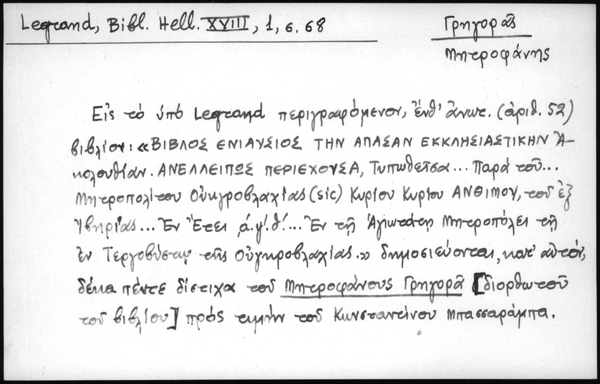 Legrand, Bibl. Hell. XVIII, 1, σ. 68
Γρηγορᾶς
Μητροφάνης
Εἰς τὸ ὑπὸ Legrand περιγραφόμενον, ἔνθ' ἄνωτ. (ἀριθ. 52)
βιβλίον: «ΒΙΒΛΟΣ ΕΝΙΑΥΣΙΟΣ ΤΗΝ ΑΠΑΣΑΝ ΕΚΚΛΗΣΙΑΣΤΙΚΗΝ Ἀ-
κολουθίαν. ΑΝΕΛΛΕΙΠΩΣ ΠΕΡΙΕΧΟΥΣΑ, Τυπωθεῖσα... Παρὰ τοῦ...
Μητροπολίτου Οὐκγροβλαχίας (sic) Κυρίου Κυρίου ΑΝΘΙΜΟΥ, τοῦ ἐξ
Ἰβηρίας... Ἐν Ἔτει ͵α.ψ'.θ'... Ἐν τῇ Ἁγιωτάτῃ Μητροπόλει τῇ
ἐν Τεργοβύστῳ τῆς Οὐγκροβλαχίας.» δημοσιεύονται, κατ' αὐτόν,
δέκα πέντε δίστιχα τοῦ Μητροφάνους Γρηγορᾶ [διορθωτοῦ
τοῦ βιβλίου] πρὸς τιμὴν τοῦ Κωνσταντίνου Μπασσαράμπα.